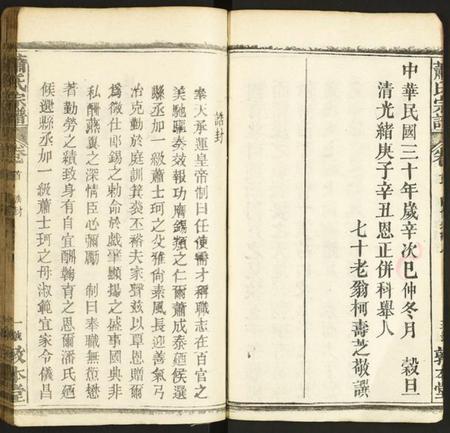 蕭氏宗譜
中華民國三十年歲次辛巳仲冬月 穀旦
清光緒庚子辛丑恩正併科舉人
七十老翁柯壽芝敬譔
敦本堂
誥封
奉天承運皇帝制曰任使需才稱職志在百官之
美馳驅奏效報功膺錫類之仁爾蕭成泰廼候選
縣丞加一級蕭士珂之父雅尚素風長迎善氣弓
冶克勤於庭訓箕裘丕裕夫家聲茲以覃恩贈爾
為徵仕郎錫之勅命於戲肇顯揚之盛事國典非
私酬燕翼之深情臣心彌勵 制曰奉職無愆懋
著勤勞之績致身有自宜酬鞠育之恩爾潘氏廼
候選縣丞加一級蕭士珂之母淑範宜家令儀昌
蕭氏宗譜
卷首
誥封
一
敦本堂